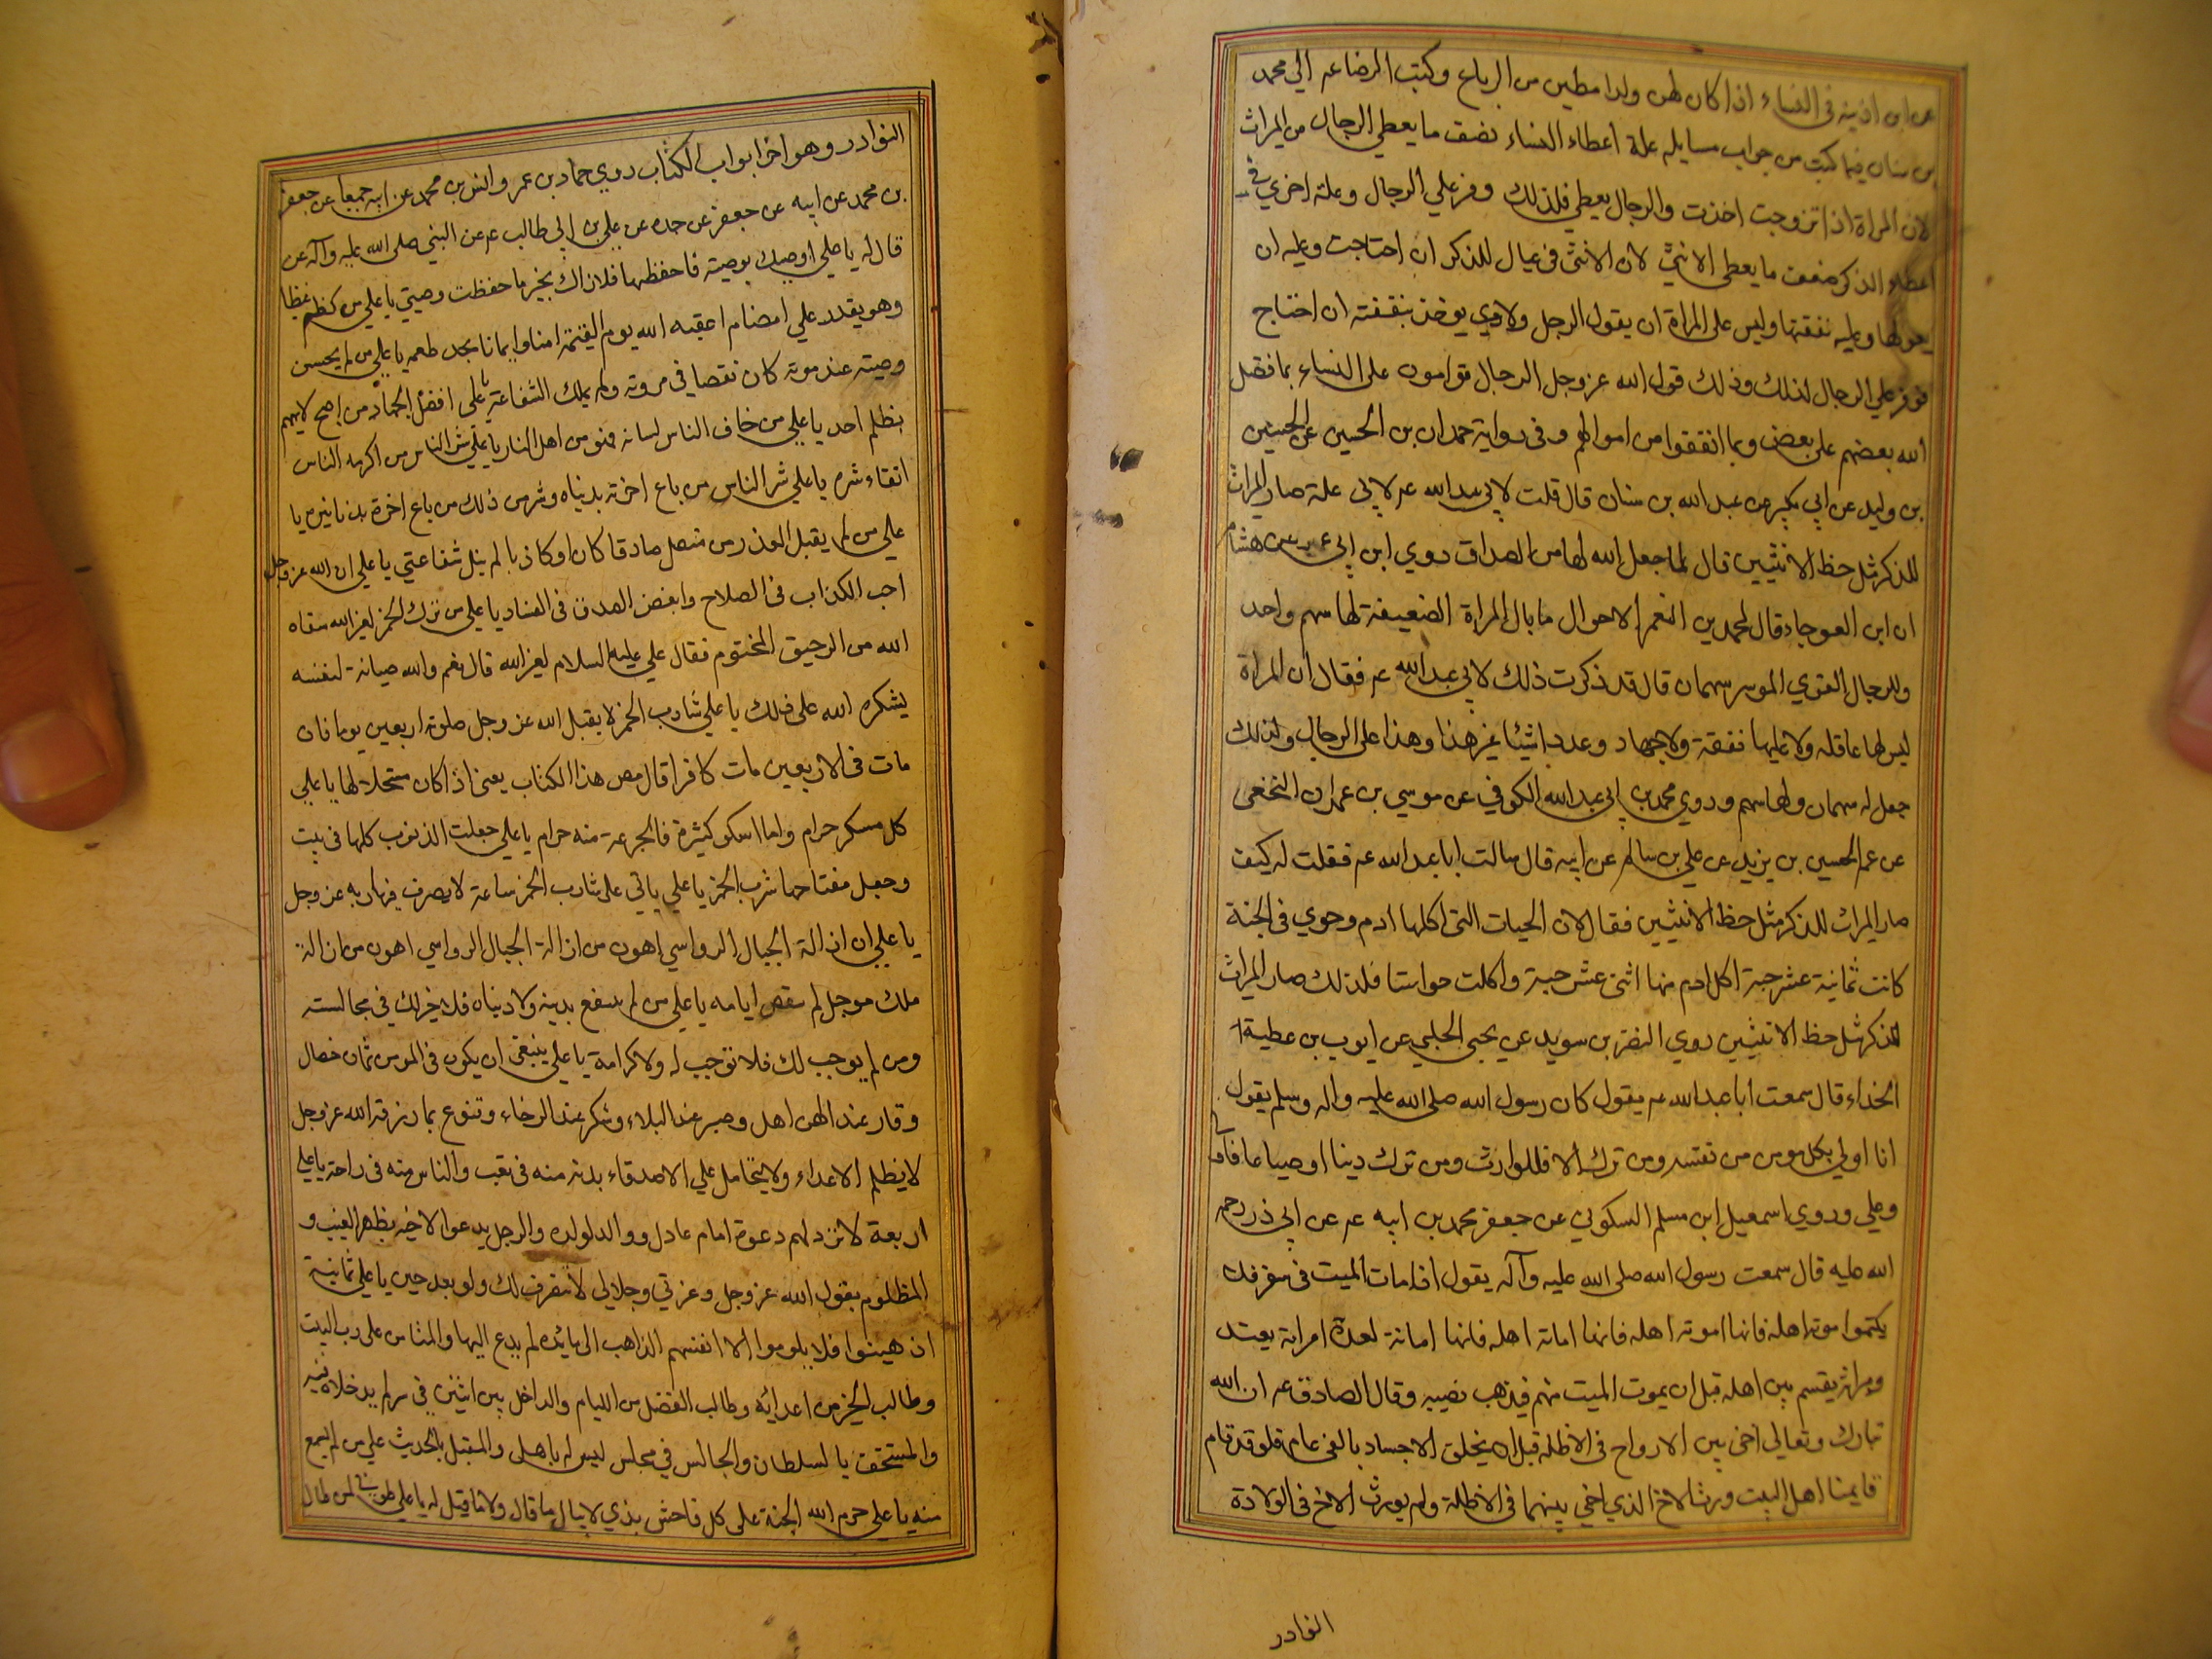 عن ابن اذينه فى النساء اذا كان لهن ولدا مطين من الرباع وكتب الرضا عم الي محمد
بن سنان فيما كتبت من جواب مسايله علة اعطاء النساء نصف ما يعطي الرجال من الميراث
لان المراة اذا تزوجت اخذت والرجال يعطي فلذلك وفر علي الرجال وعلة اخري في
اعطاء الذكر ضعف ما يعطى الانثي لان الانثى فى عيال للذكر ان احتاجت وعليه ان
يعولها وعليه نفقتها وليس على المراة ان يقول الرجل ولا دي يوخذ بنفقته ان احتاج
فوفر علي الرجال لذلك وذلك قول الله عز وجل الرجال قوامون على النساء بما فضل
الله بعضهم على بعض وبما انفقوا من اموالهم وفى رواية حمدان بن الحسين عن الحسين
بن وليد عن ابي بكير عن عبد الله بن سنان قال قلت لابي عبد الله عم لاي علة صار الميراث
للذكر مثل حظ الانثيين قال لما جعل الله لها من الصداق روي ابن ابى عمير عن هشام
ان ابن العوجاء قال لمحمد بن النعمر الاحوال ما بال المراة الضعيفة لها سهم واحد
وللرجال القوي الموسر سهمان قال قد ذكرت ذلك لابي عبد الله عم فقال ان المراة
ليس لها عاقله ولا عليها نفقة ولا جهاد وعدد اشيئا غير هذا وهذا على الرجال ولذلك
جعل له سهمان ولها سهم وروي محمد بن ابى عبد الله الكوفي عن موسي بن عمران النخعى
عن عم الحسين بن يزيد عن علي بن سالم عن ابيه قال سالت ابا عبد الله عم فقلت له كيف
صار الميراث للذكر مثل حظ الانثيين فقال لان الحبات التى اكلها ادم وحوي فى الجنة
كانت ثمانية عشر حبة اكل ادم منها اثنى عشر حبة واكلت حوا ستا فلذلك صار الميراث
للذكر مثل حظ الانثيين روي النضر بن سويد عن يحيى الحلبي عن ايوب بن عطية
الحذاء قال سمعت ابا عبد الله عم يقول كان رسول الله صلى الله عليه واله وسلم يقول
انا اولي بكل مومن من نفسه ومن ترك الا فللوارث ومن ترك دينا اوضياعا فالي
وعلي وروي اسمعيل ابن مسلم السكوني عن جعفر محمد بن ابيه عم عن ابى ذر رحمه
الله عليه قال سمعت رسول الله صلى الله عليه وآله يقول اذا مات الميت فى سفر فلا
يكتموا موته اهله فانها اموته اهله فانها امانة اهله فانها امانة لعدة امراته يعتد
وميراثه يقسم بين اهله قبل ان يموت الميت منهم فيذهب نصيبه وقال الصادق عم ان الله
تبارك وتعالي اخى بين الارواح فى الاظلة قبل ان يخلق الاجساد بالفى عام فلو قد قام
قايمنا اهل البيت ورث الاخ الذي اخى بينهما فى الاظلة ولم يورث الاخ فى الولادة
النوادر
النوادر وهو اخر ابواب الكتاب روي حماد بن عمر وانس بن محمد عن ابيه جميعا عن جعفر
بن محمد عن ابيه عن جعفر عن جده عن علي بن ابي طالب عم عن النبي صلى الله عليه وآله عن
قال له يا علي اوصيك بوصية فاحفظها فلان اك بخير ما حفظت وصيتي يا علي من كظم غيظا
وهو يقدر علي امضاه اعقبه الله يوم القيمة امنا وايمانا يجد طعمه يا علي من لم يحسن
وصيته عند موته كان نقصا في مروته ولم يملك الشفاعة يا علي افضل الجهاد من اصبح لا يهم
بظلم احد يا علي من خاف الناس لسانه فهو من اهل النار يا علي شر الناس من اكرمه الناس
اتقاء شره يا علي شر الناس من باع اخرته بدنياه وشر من ذلك من باع اخرة بدنيا غيره يا
علي من لم يقبل العذر من متصل صادقا كان او كاذبا لم ينل شفاعتي يا علي ان الله عز وجل
احب الكذاب فى الصلاح وابغض الصدق فى الفساد يا علي من ترك الخمر لغير الله سقاه
الله من الرحيق المختوم فقال علي عليه السلام لغير الله قال نعم والله صيانة لنفسه
يشكره الله على ذلك يا علي شارب الخمر لا يقبل الله عز وجل صلوته اربعين يوما فان
مات فى الاربعين مات كافرا قال مص هذا الكتاب يعنى اذا كان مستحلا لها يا علي
كل مسكر حرام وما اسكر كثيرة فالجرعة منه حرام يا علي جعلت الذنوب كلها فى بيت
وجعل مفتاحها شرب الخمر يا علي ياتى على شارب الخمر ساعة لا يعرف فيها ربه عز وجل
يا علي ان ازالة الجبال الرواسي اهون من ازالة الجبال الرواسي اهون من ازالة
ملك موجل لم ينقص ايامه يا علي من لم ينتفع بدينه ولا دنياه فلا خير لك فى مجالسته
ومن لم يوجب لك فلا توجب له ولا كرامة يا علي ينبغى ان يكون فى المومن ثمان خصال
وقار عند الهزاهز وصبر عند البلاء وشكر عند الرخاء وقنوع بما رزقه الله عز وجل
لا يظلم الاعداء ولا يتحامل علي الاصدقاء بدنه منه فى تعب والناس منه فى راحة يا علي
اربعة لا ترد لهم دعوة امام عادل ووالد لولده والرجل يدعوا لاخيه بظهر الغيب و
المظلوم يقول الله عز وجل وعزتي وجلالي لانتصرن لك ولو بعد حين يا علي ثمانية
ان هينوا فلا يلوموا الا انفسهم الذاهب الى مائدة لم يدع اليها والمتامر على رب البيت
وطالب الخير من اعدائه وطالب الفضل من الليام والداخل بين اثنين فى سر لم يدخلاه فيه
والمستخف بالسلطان والجالس في مجلس ليس له باهل والمقبل بالحديث علي من لم يسمع
منه يا علي حرم الله الجنة على كل فاحش بذي لا يبال ما قال ولا ما قيل له يا علي طوبى لمن طال